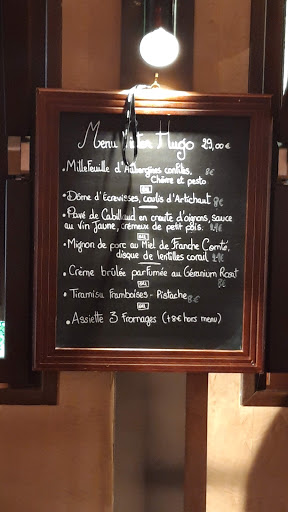 Menu Victor Hugo 29,00€
• Millefeuille d'Aubergines confites, 8€
Chèvre et pesto
• Dôme d'Ecrevisses, coulis d'Artichaut 8€
• Pavé de Cabillaud en croute d'oignons, sauce
au vin Jaune, crèmeux de petit pois.
• Mignon de porc au Miel de Franche Comté,
disque de lentilles corail
• Crème brûlée parfumée au Géranium Rosat
8€
• Tiramisu Framboises - Pistache 8€
• Assiette 3 Fromages (+8€ hors menu)